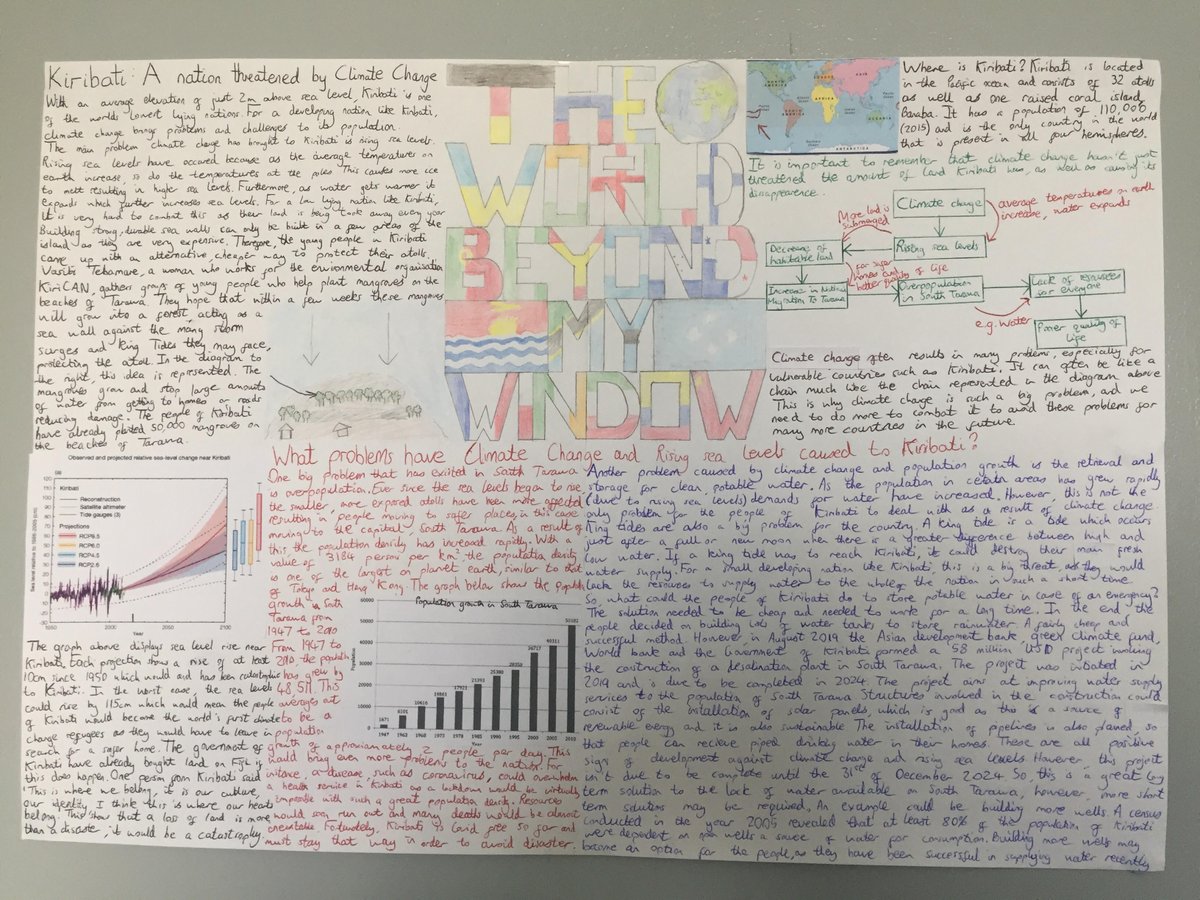 Kiribati: A nation threatened by Climate Change
With an average elevation of just 2m above sea level, Kiribati is one
of the worlds lowest lying nations. For a developing nation like Kiribati,
climate change brings problems and challenges to its population.
The main problem climate change has brought to Kiribati is rising sea levels.
Rising sea levels have occured because as the average temperature on
earth increase, so do the temperatures at the poles. This causes more ice
to melt resulting in higher sea levels. Furthermore, as water gets warmer it
expands which further increases sea levels. For a low lying nation like Kiribati,
it is very hard to combat this as their land is being took away every year
Building strong, durable sea walls can only be built in a few areas of the
island as they are very expensive. Therefore, the young people in Kiribati
came up with an alternative cheaper way to protect their atolls.
Vasiti Tebamare, a woman who works for the environmental organisation
KiriCAN, gathers groups of young people who help plant mangroves on the
beaches of Tarawa. They hope that within a few weeks these mangroves
will grow into a forest, acting as a
sea wall against the many storm
surges and King Tides they may face,
protecting the atoll. In the diagram to
the right, this idea is represented. The
mangroves grow and stop large amounts
of water from getting to homes or roads
reducing damage. The people of Kiribati
have already planted 50,000 mangroves on
the beaches of Tarawa.
THE
WORLD
BEYOND
MY
WINDOW
Where is Kiribati? Kiribati is located
in the Pacific ocean and consists of 32 atolls
as well as one raised coral island,
Banaba. It has a population of 110,000
(2015) and is the only country in the world
that is present in all four hemispheres.
NORTH AMERICA
SOUTH AMERICA
EUROPE
AFRICA
ASIA
OCEANIA
ANTARCTICA
It is important to remember that climate change hasn't just
threatened the amount of land Kiribati has, as well as causing its
disappearence.
Climate change
average temperatures on earth
increase, water expands
More land is
submerged
Rising sea levels
Decrease of
habitable land
for safer
homes and
better quality of life
Increase in
Migration to Tarawa
Overpopulation
in South Tarawa
Lack of resources
for everyone
e.g. water
Poorer quality of
life
Climate change often results in many problems, especially for
vulnerable countries such as Kiribati. It can often be like a
chain much like the chain represented in the diagram above
This is why climate change is such a big problem, and we
need to do more to combat it to avoid these problems for
many more countries in the future.
Observed and projected relative sea-level change near Kiribati
Kiribati
Reconstruction
Satellite altimeter
Tide gauges (3)
Projections
RCP8.5
RCP6.0
RCP4.5
RCP2.6
Sea level relative to 1986-2005 (cm)
120
110
100
90
80
70
60
50
40
30
20
10
0
-10
-20
-30
1950
2000
2050
2100
Year
The graph above displays sea level rise near
Kiribati. Each projection show a rise of at least
10cm since 1950 which would and has been catastrophic
to Kiribati. In the worst case, the sea level
could rise by 115cm which would mean the people
of Kiribati would become the world's first climate
change refugees as they would have to leave in
search for a safer home. The government of
Kiribati have already bought land on Fiji if
this does happen. One person from Kiribati said
'This is where we belong, it is our culture,
our identity. I think this is where our hearts
belong.' This show that a loss of land is more
than a disaster, it would be a catastrophy.
What problems have Climate Change and Rising sea levels caused to Kiribati?
One big problem that has existed in South Tarawa
is overpopulation. Ever since the sea levels began to rise,
the smaller, more exposed atolls have been more affected
resulting in people moving to safer places, in this case
moving to the capital South Tarawa. As a result of
this, the population density has increased rapidly. With a
value of 3184 person per km² the population density
is one of the largest on planet earth, similar to that
of Tokyo and Hong Kong. The graph below show the population
growth in South
Tarawa from
1947 to 2010
From 1947 to
2010, the population
has grew by
48,511. This
averages out
to be a
population
growth of approximately 2 people per day. This
would bring even more problems to the nation. For
instance, a disease, such as coronavirus, could overwhelm
a health service in Kiribati as a lockdown would be virtually
impossible with such a great population density. Resources
would soon run out and many deaths would be almost
certain. Fortunately, Kiribati is covid free so far and
must stay that way in order to avoid disaster.
Population growth in South Tarawa
Population
60000
50000
40000
30000
20000
10000
0
1671
6101
10616
14861
17921
21393
25380
28350
36717
40311
50182
1947
1963
1968
1973
1978
1985
1990
1995
2000
2005
2010
Year
Another problem caused by climate change and population growth is the retrieval and
storage for clean, potable water. As the population in certain areas has grew rapidly
(due to rising sea levels) demands for water have increased. However, this is not the
only problem for the people of Kiribati to deal with as a result of climate change.
King tides are also a big problem for the country. A king tide is a tide which occurs
just after a full or new moon when there is a greater difference between high and
low water. If a king tide was to reach Kiribati, it could destroy their main fresh
water supply. For a small developing nation like Kiribati, this is a big threat as they would
lack the resources to supply water to the whole of the nation in such a short time.
So, what could the people of Kiribati do to store potable water in case of an emergency?
The solution needed to be cheap and needed to work for a long time. In the end the
people decided on building lots of water tanks to store rainwater. A fairly cheap and
successful method. However in August 2019 the Asian development bank, green climate fund,
World bank and the Government of Kiribati formed a 58 million USD project involving
the construction of a desalination plant in South Tarawa. The project was initiated in
2019 and is due to be completed in 2024. The project aims at improving water supply
services to the population of South Tarawa Structures involved in the construction could
consist of the installation of solar panels, which is good as this is a source of
renewable energy and it is also sustainable The installation of pipelines is also planed, so
that people can recieve piped drinking water in their homes. These are all positive
sign of development against climate change and rising sea levels However, this project
isn't due to be complete until the 31st of December 2024 So, this is a great long
term solution to the lack of water available on South Tarawa, however, more short
term solutions may be required. An example could be building more wells. A census
conducted in the year 2005 revealed that at least 80% of the population of Kiribati
were dependent on wells a source of water for consumption. Building more wells may
become an option for the people, as they have been successful in supplying water recently